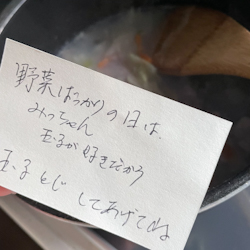 野菜ばっかりの日は、
みっちゃん
玉子が好きだから
玉子とじ してあげてね